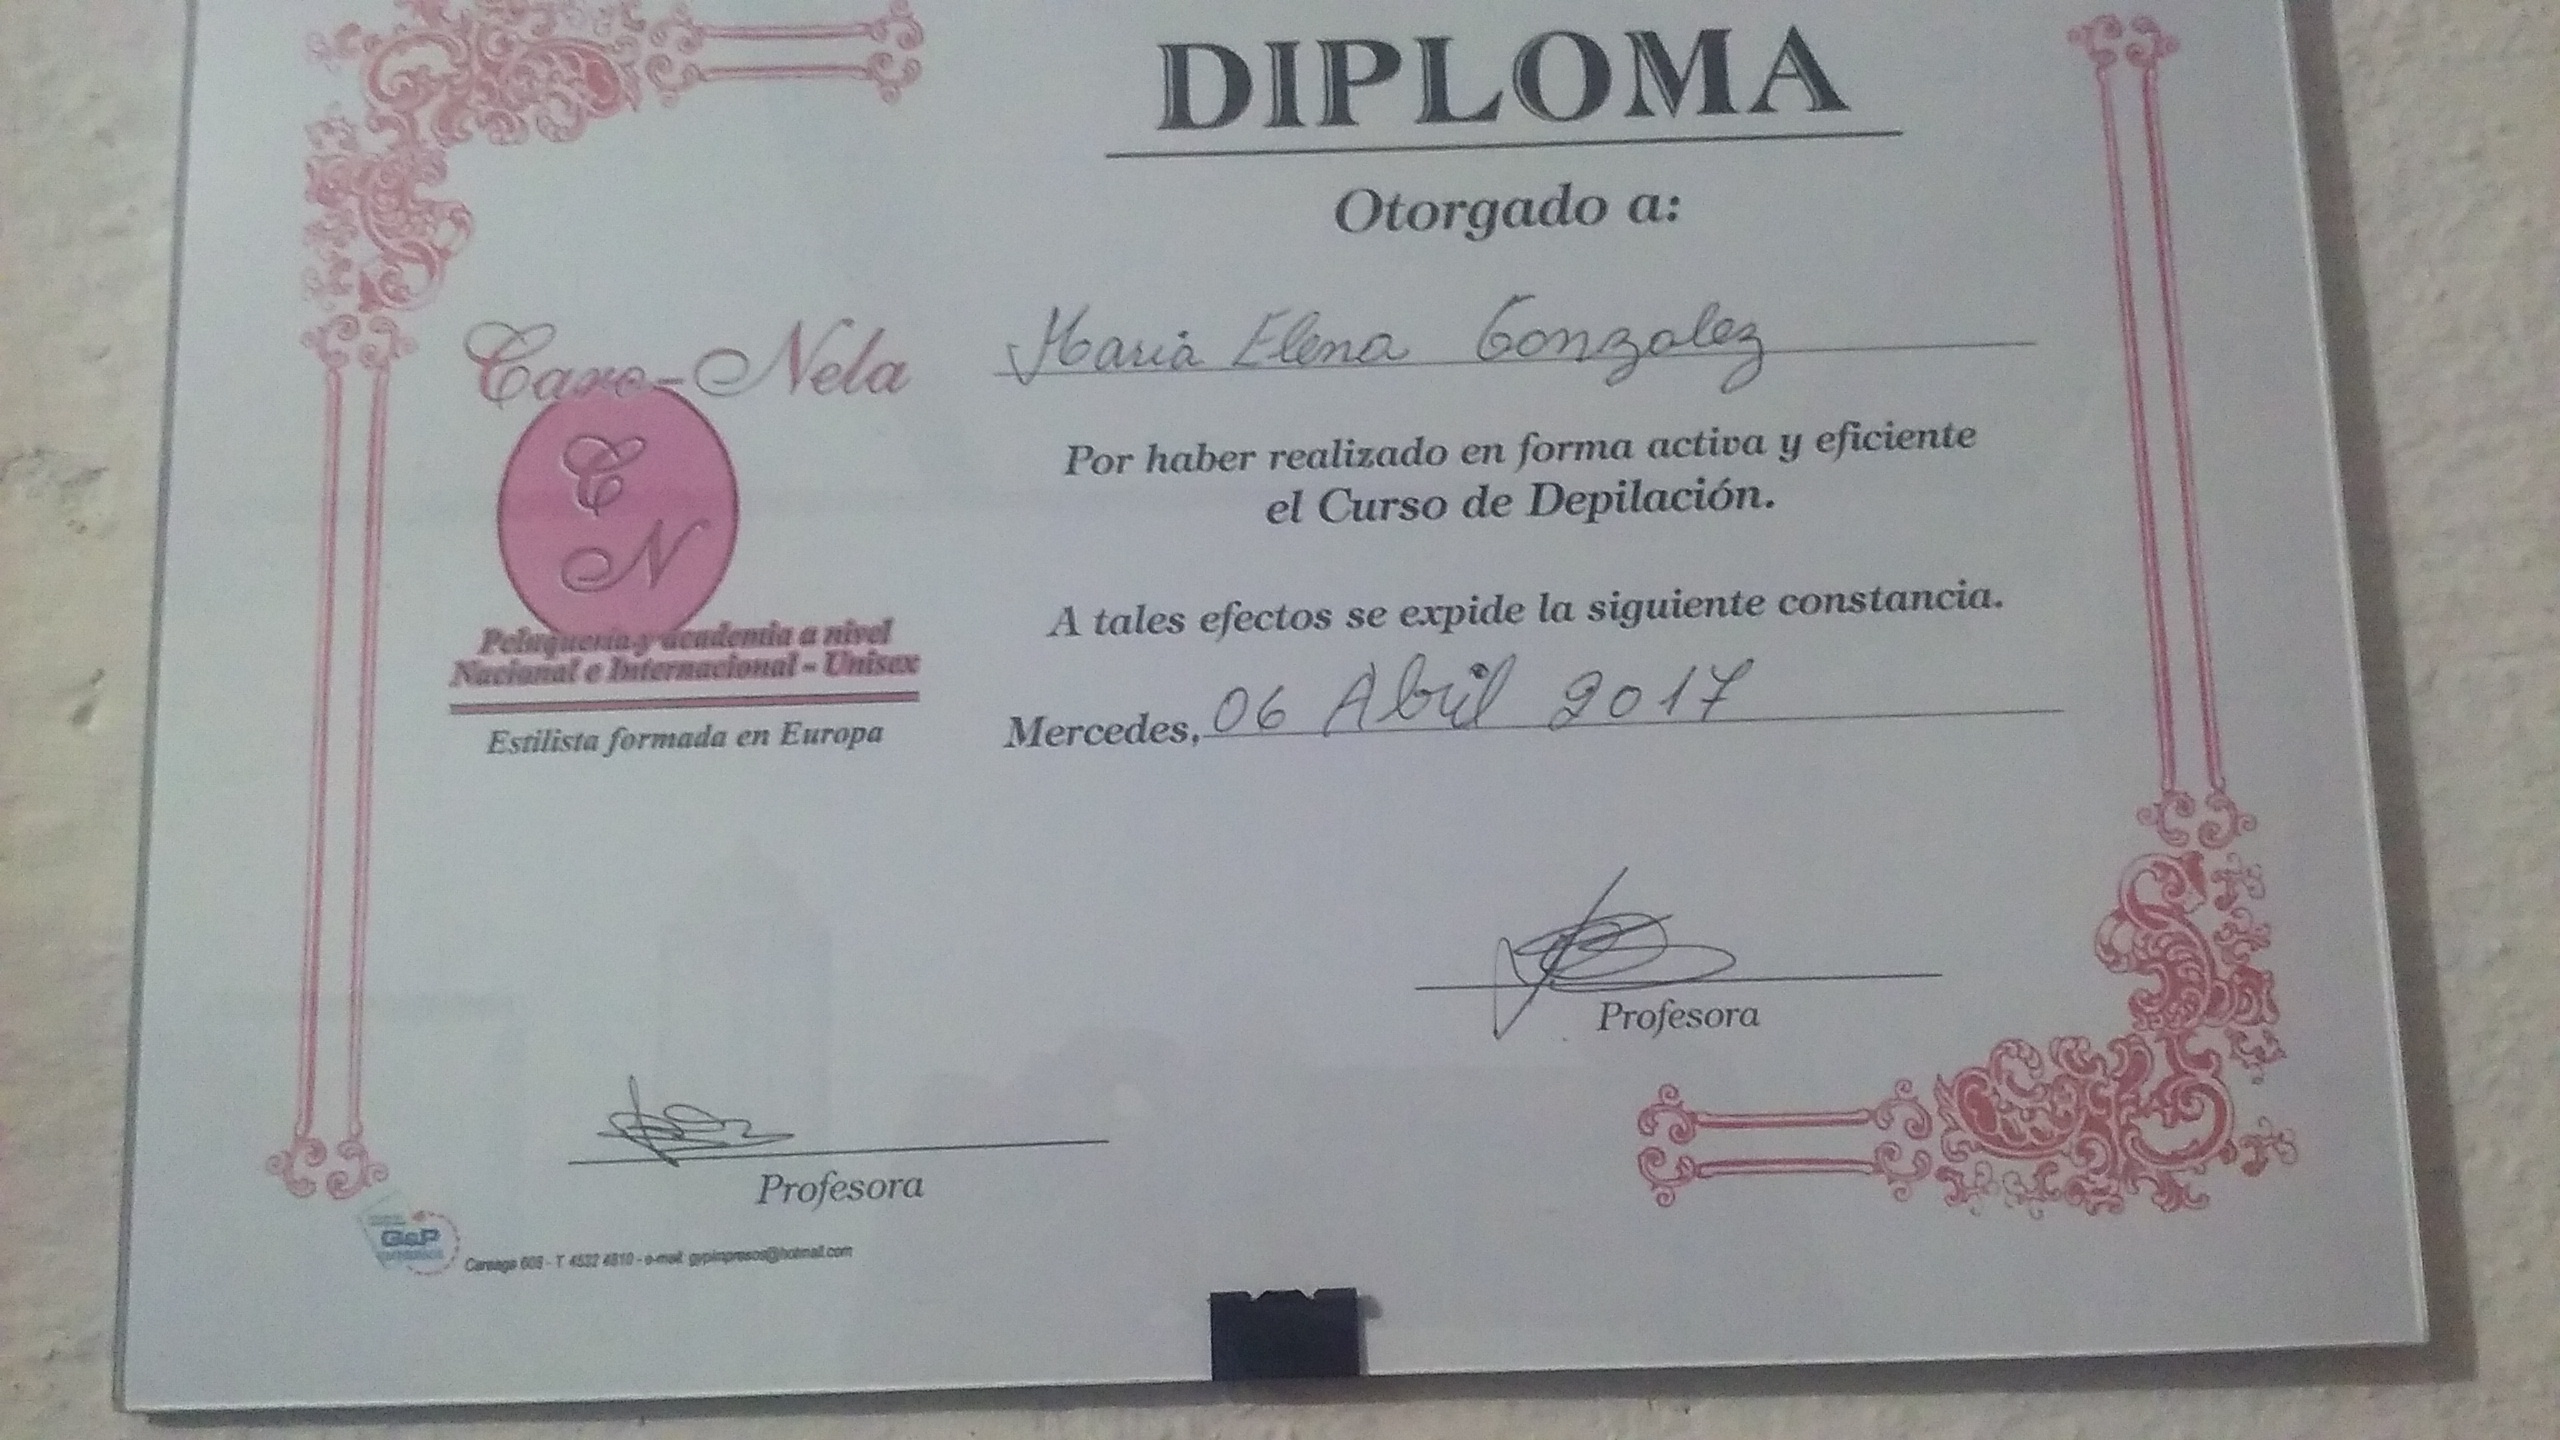 DIPLOMA
Otorgado a:
Maria Elena Gonzalez
Caro-Nela
C
N
Peluqueria y academia a nivel
Nacional e Internacional - Unisex
Estilista formada en Europa
Por haber realizado en forma activa y eficiente
el Curso de Depilación.
A tales efectos se expide la siguiente constancia.
Mercedes, 06 Abril 2017
Profesora
Profesora
G&P
Careaga 608 - T 4532 4810 - e-mail: gypimpresos@hotmail.com